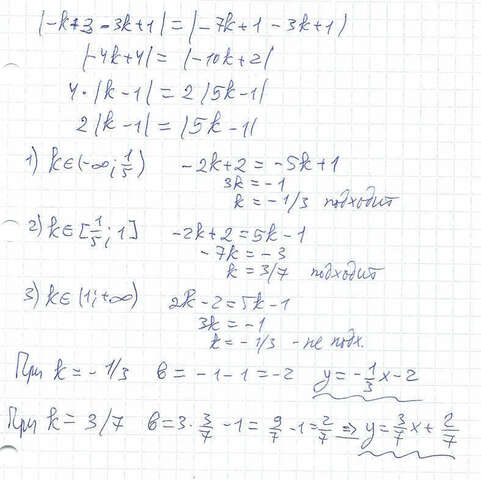 |-k+3 - 3k+1| = |-7k+1 - 3k+1|
|-4k+4| = |-10k+2|
4·|k-1| = 2|5k-1|
2|k-1| = |5k-1|
1) k∈(-∞; 1/5) -2k+2 = -5k+1
3k = -1
k = -1/3 подходит
2) k∈[1/5; 1] -2k+2 = 5k-1
-7k = -3
k = 3/7 подходит
3) k∈(1; +∞) 2k-2 = 5k-1
3k = -1
k = -1/3 - не подх.
При k = -1/3 в = -1-1 = -2 y = -1/3x-2
При k = 3/7 в = 3·3/7-1 = 9/7-1 = 2/7 ⇒ y = 3/7x+2/7